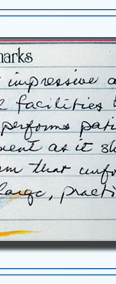 marks
impressive a
facilities
performs pati
ment as it s
m that unf
large, practi